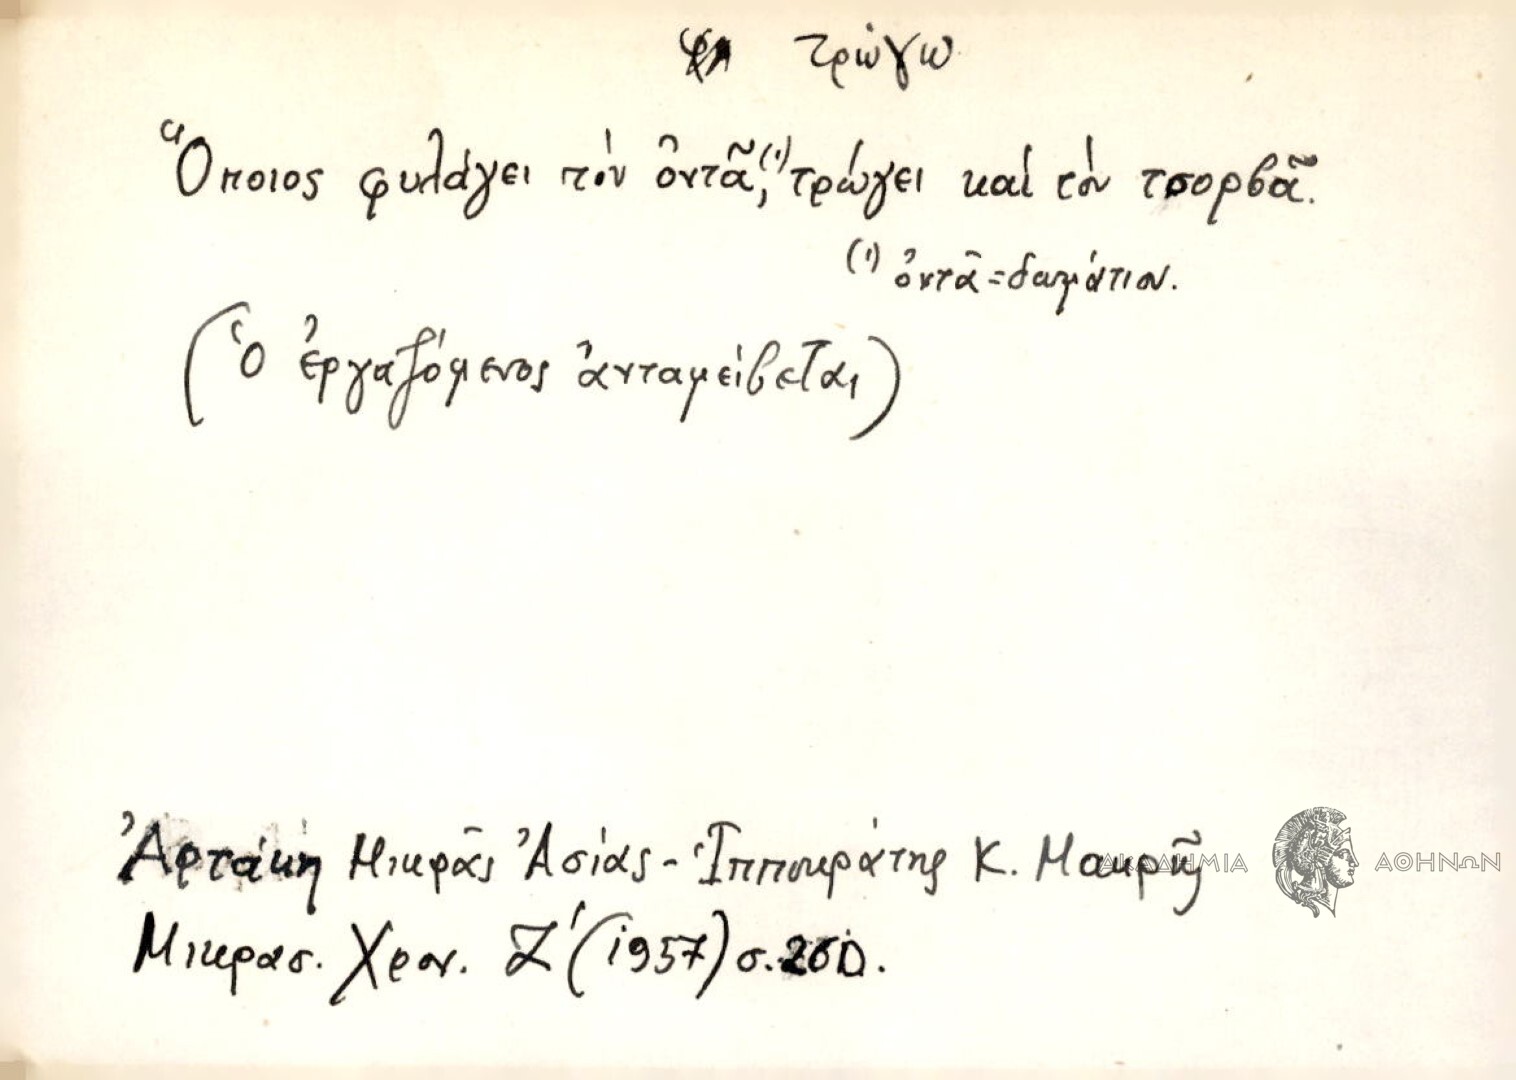 τρώγω
Ὅποιος φυλάγει τὸν ὀντᾶ,(1) τρώγει καὶ τὸν τσορβᾶ.
(1) ὀντᾶ = δωμάτιον.
(Ὁ ἐργαζόμενος ἀνταμείβεται)
Ἀρτάκη Μικρᾶς Ἀσίας - Ἱπποκράτης Κ. Μακρῆς
ΑΚΑΔΗΜΙΑ ΑΘΗΝΩΝ
Μικρασ. Χρον. Ζ' (1957) σ. 260.